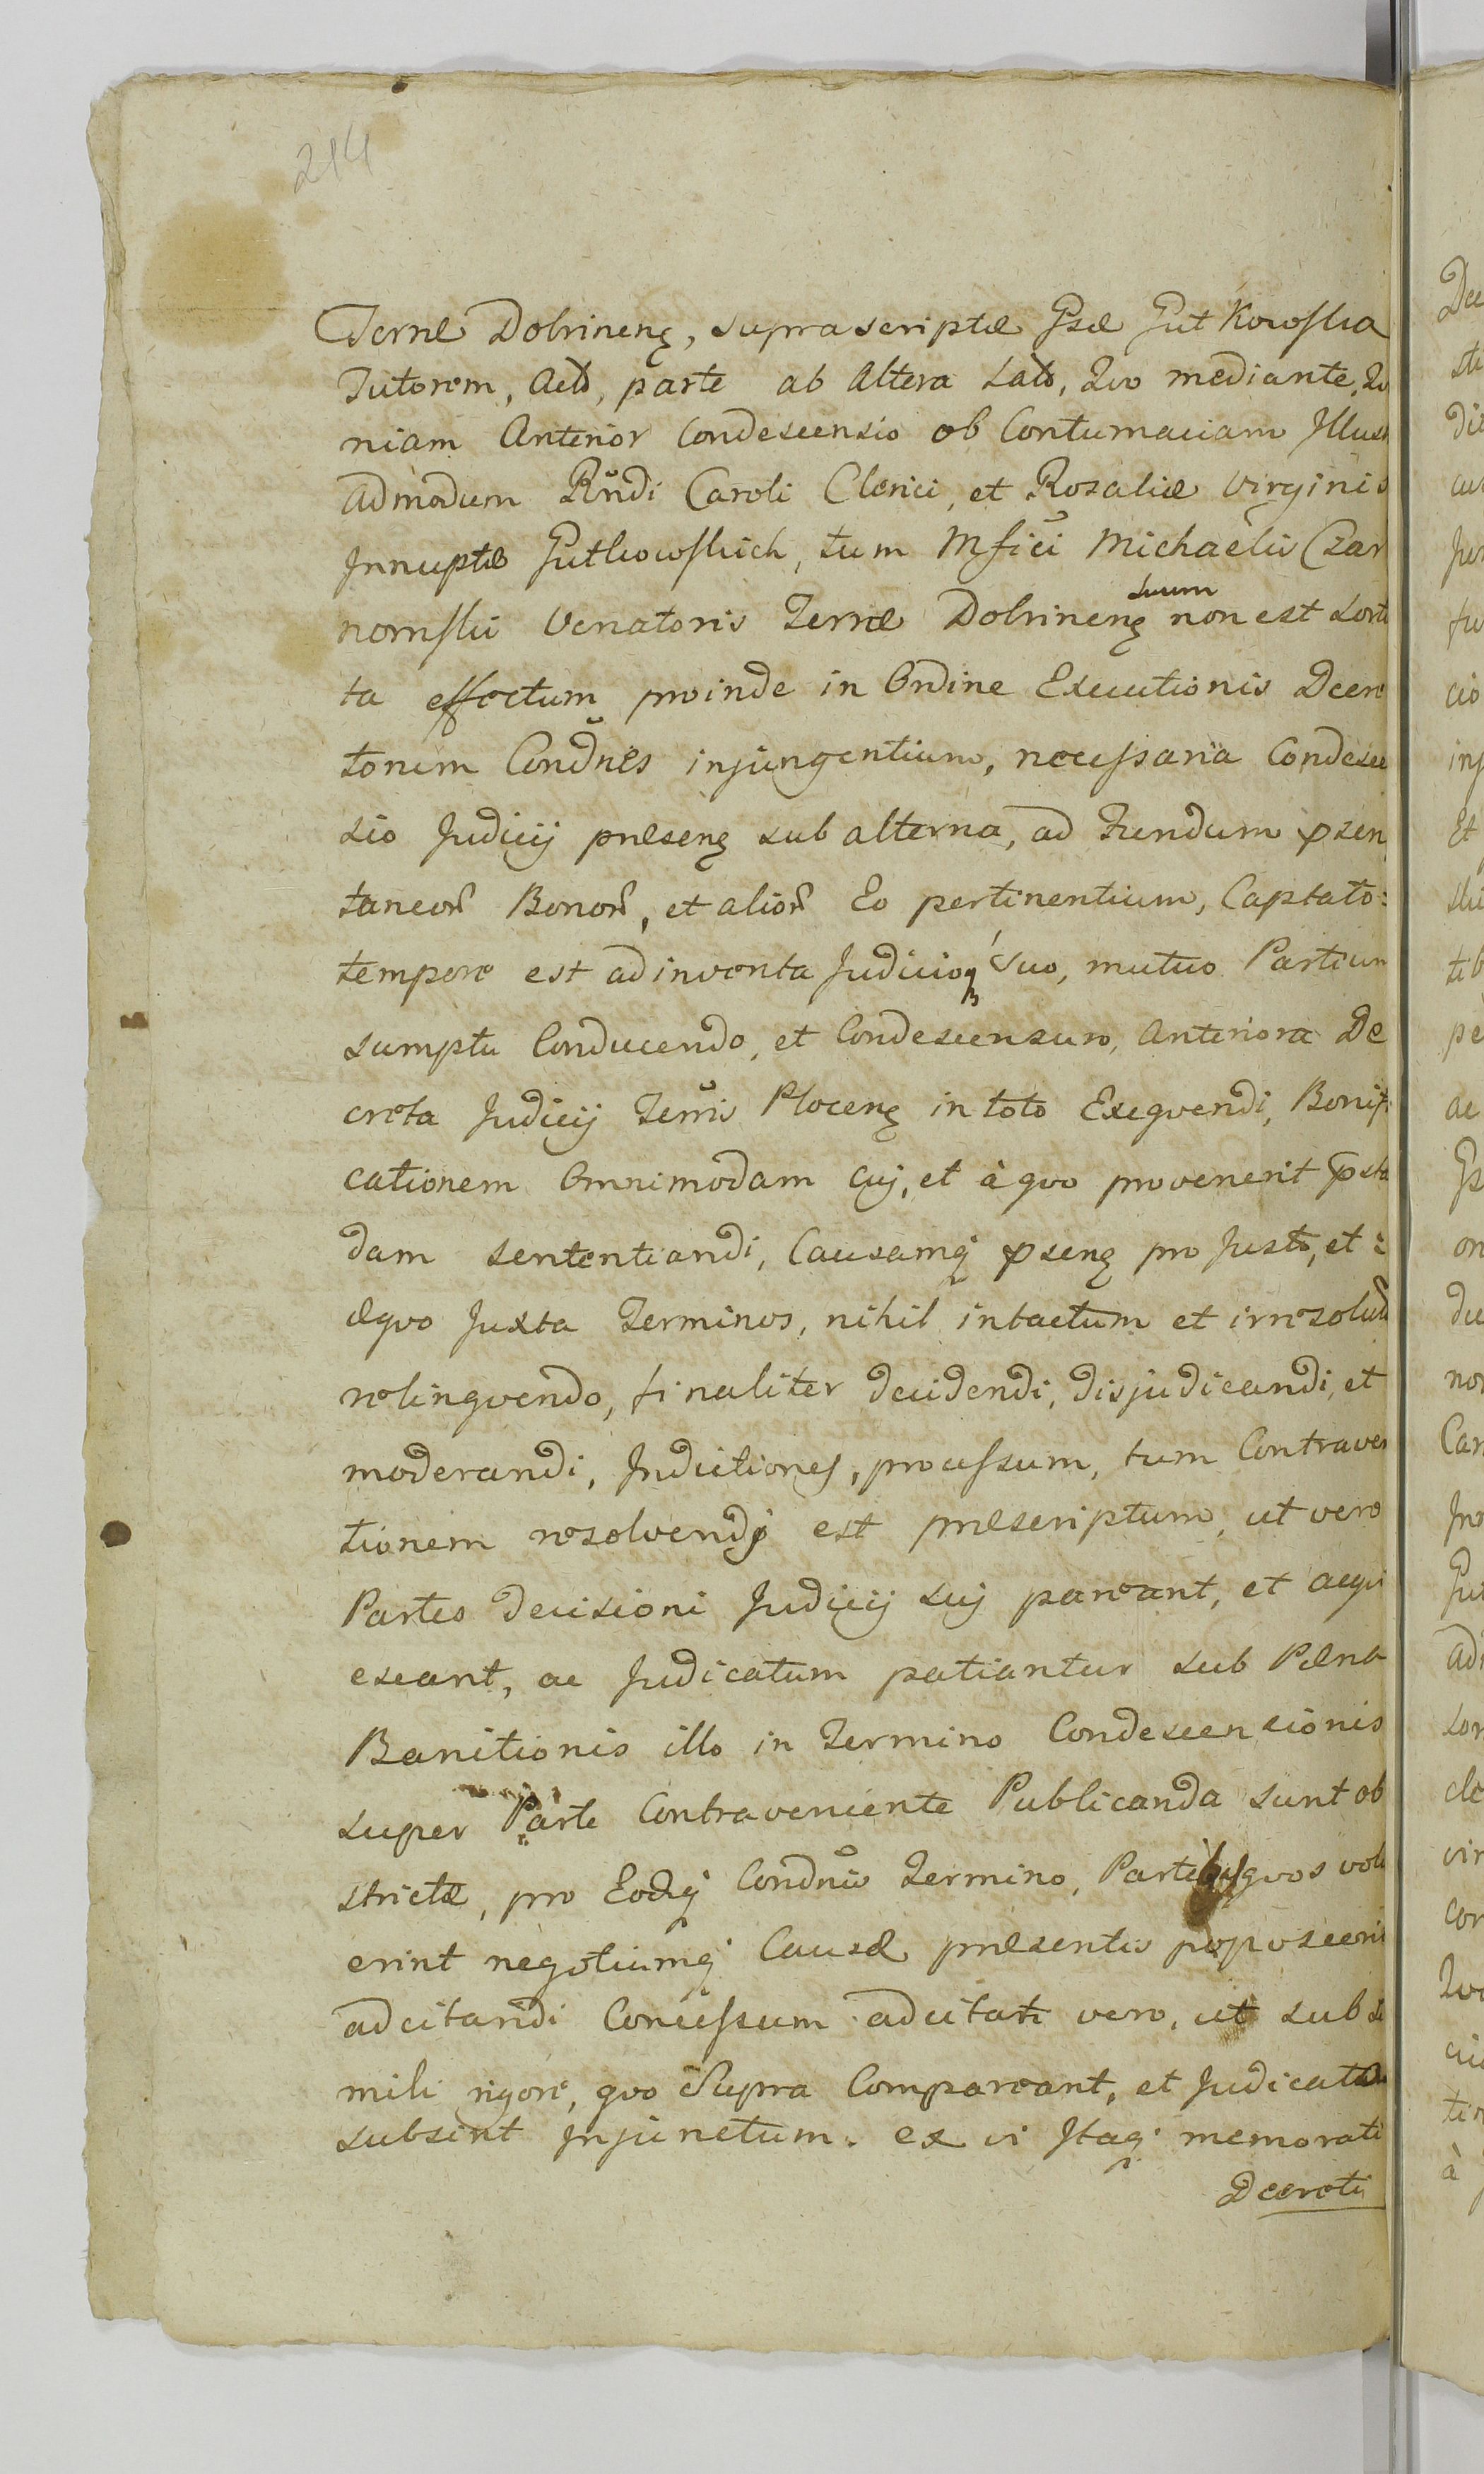 214
Terræ Dobrinenȝ, suprascriptæ Gsæ Gutkowska
Tutorem, Acto, parte ab Altera Lato, Quo mediante, Quo
niam Anterior Condescensio ob Contumaciam Illust
admodum Rñdi Caroli Clerici, et Rosaliæ Virginis
Innuptæ Gutkowskich, tum Mfici Michaelis Czar
nomski Venatoris Terræ Dobrinenȝ suum non est sorti
ta effectum proinde in Ordine Executionis Decre
torum Condñes injungentium, necessaria Condescen
sio Judicij præsenȝ sub alterna, ad Fundum psen
taneoȓ Bonoȓ, et alioȓ Eo pertinentium, Captato:
tempore est adinventa Judicioq Suo, mutuo Partium
sumptu Conducendo, et Condescensuro, Anteriora De
creta Judicij Terris Plocenȝ in toto Exequendi, Bonifi
cationem Omnimodam cuj, et à quo provenerit psta
dam sententiandi, Causamq psenȝ pro Justo, et :
æquo Juxta Terminos, nihil intactum et irresolutu
relinquendo, finaliter decidendi, disjudicandi, et
moderandi, Indictiones, processum, tum Contraven
tionem resolvendi est præscriptum, ut vero
Partes decisioni Judicij suj pareant, et acqui
escant, ac Judicatum patiantur sub Pæna
Banitionis illo in Termino Condescensionis
super Parte Contraveniente Publicanda sunt ob
strictæ, pro Eodq Condñis Termino, Partibus quos volu
erint negotiumq Causæ præsentis poposcerit
adcitandi Concessum adcitati vero, ut sub si
mili rigore, quo Supra Compareant, et Judicato
subsint Injunctum. ex vi Itaq memorati
Decreti